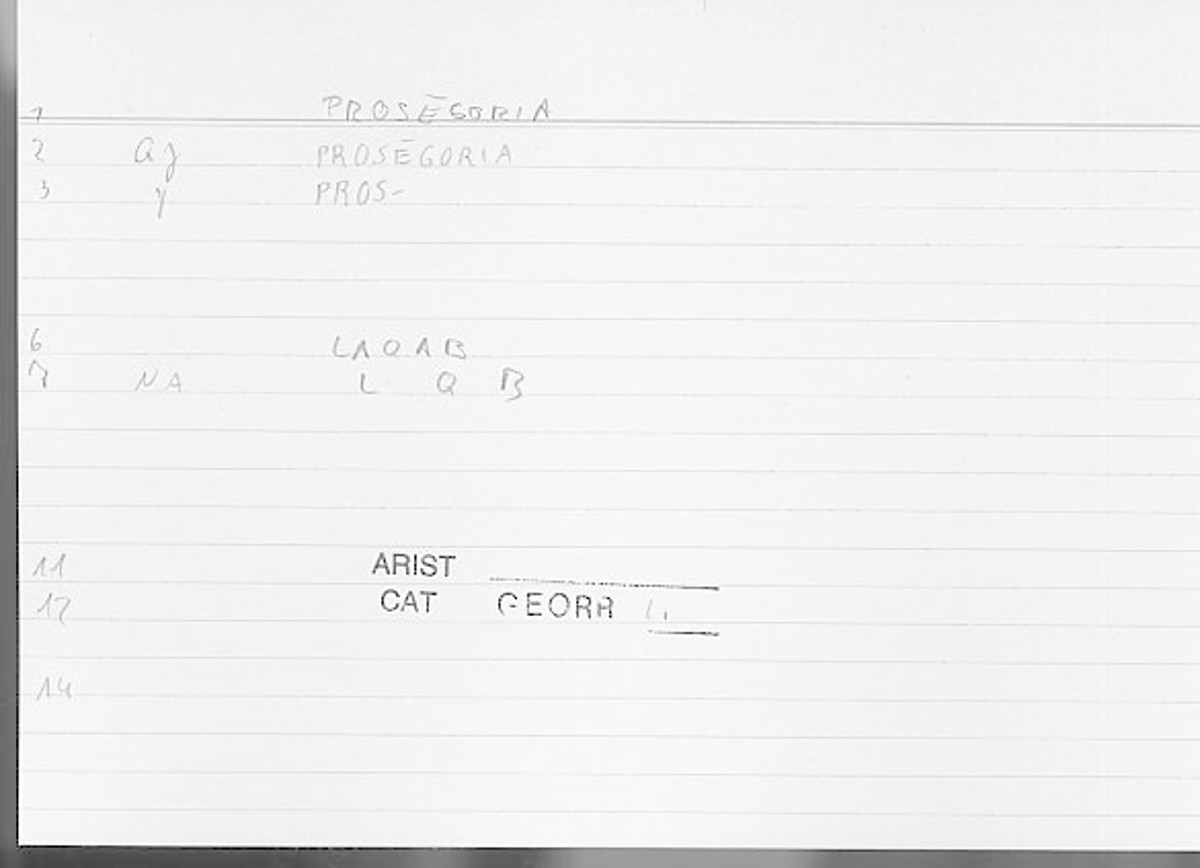 1 PROSĒGORIA
2 aj PROSĒGORIA
3 γ PROS-
6 LAQAB
7 NA L Q B
11 ARIST
12 CAT GEORR
14